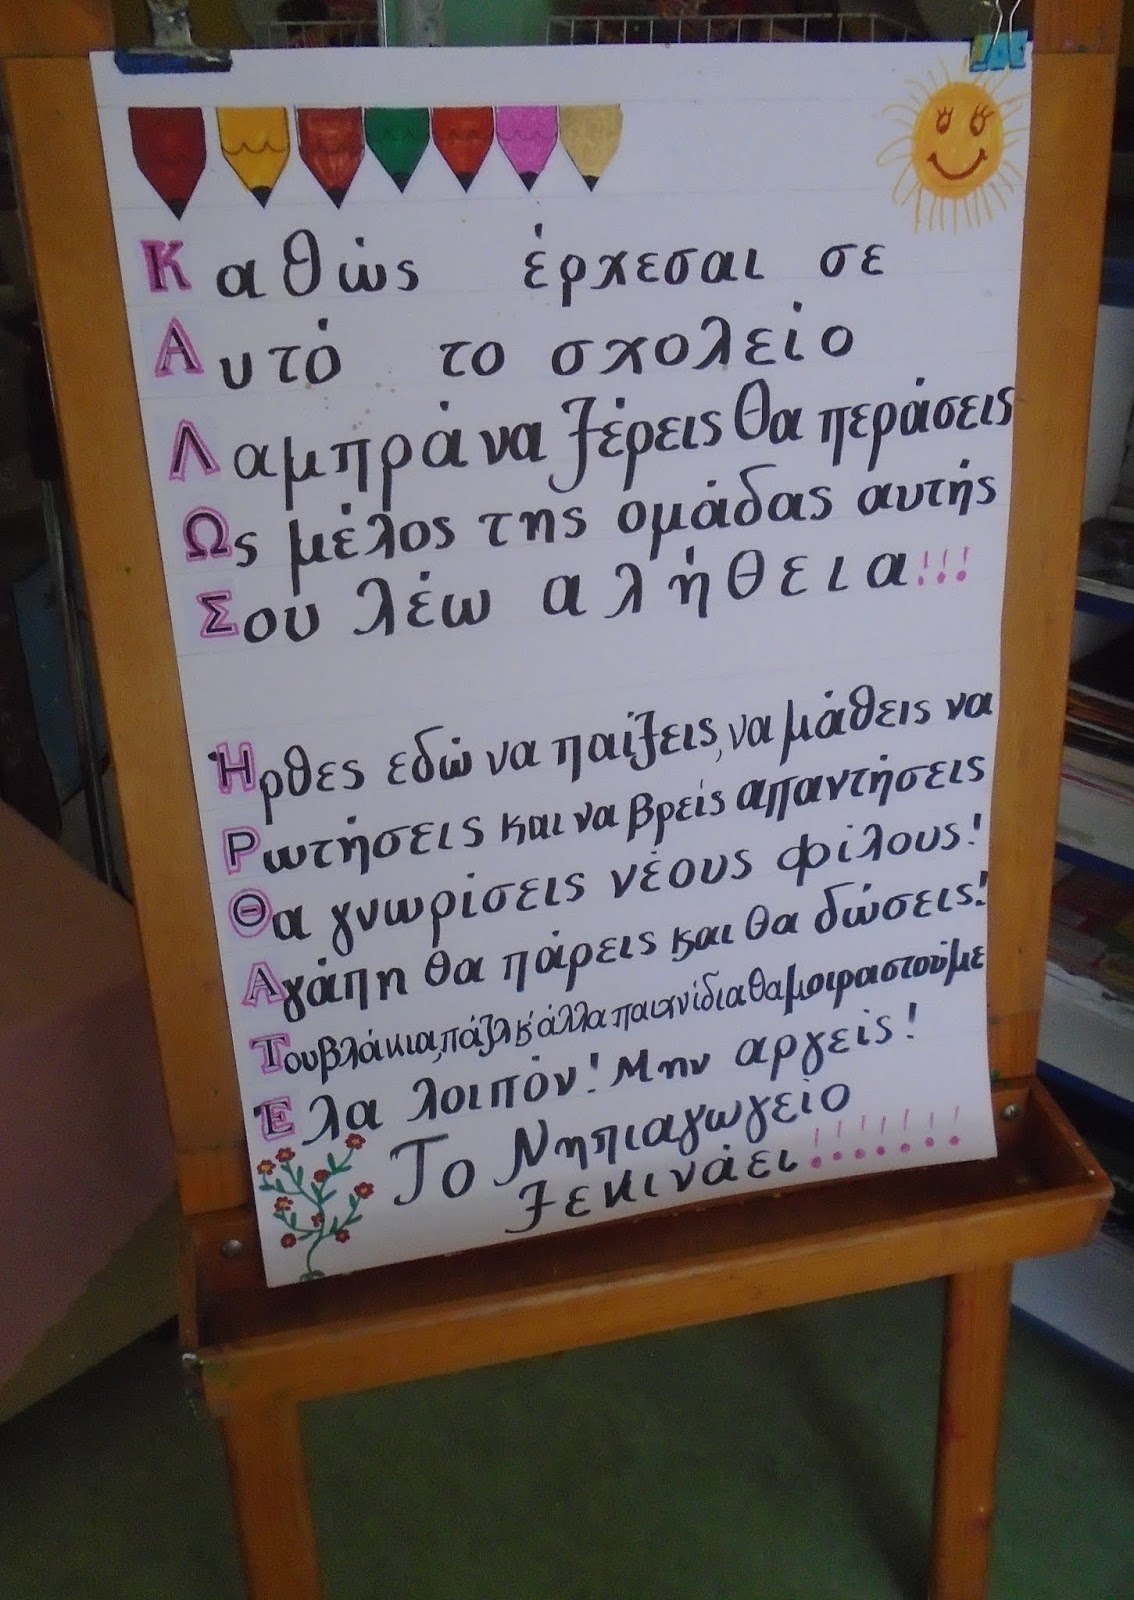 Καθώς έρχεσαι σε
Αυτό το σχολείο
Λαμπρά να ξέρεις θα περάσεις
Ως μέλος της ομάδας αυτής
Σου λέω αλήθεια!!!
Ηρθες εδώ να παίξεις, να μάθεις να
Ρωτήσεις και να βρείς απαντήσεις
Θα γνωρίσεις νέους φίλους!
Αγάπη θα πάρεις και θα δώσεις!
Τουβλάκια, πάζλ κ' άλλα παιχνίδια θα μοιραστούμε
Ελα λοιπόν! Μην αργείς!
Το Νηπιαγωγείο
ξεκινάει!!!!!!!